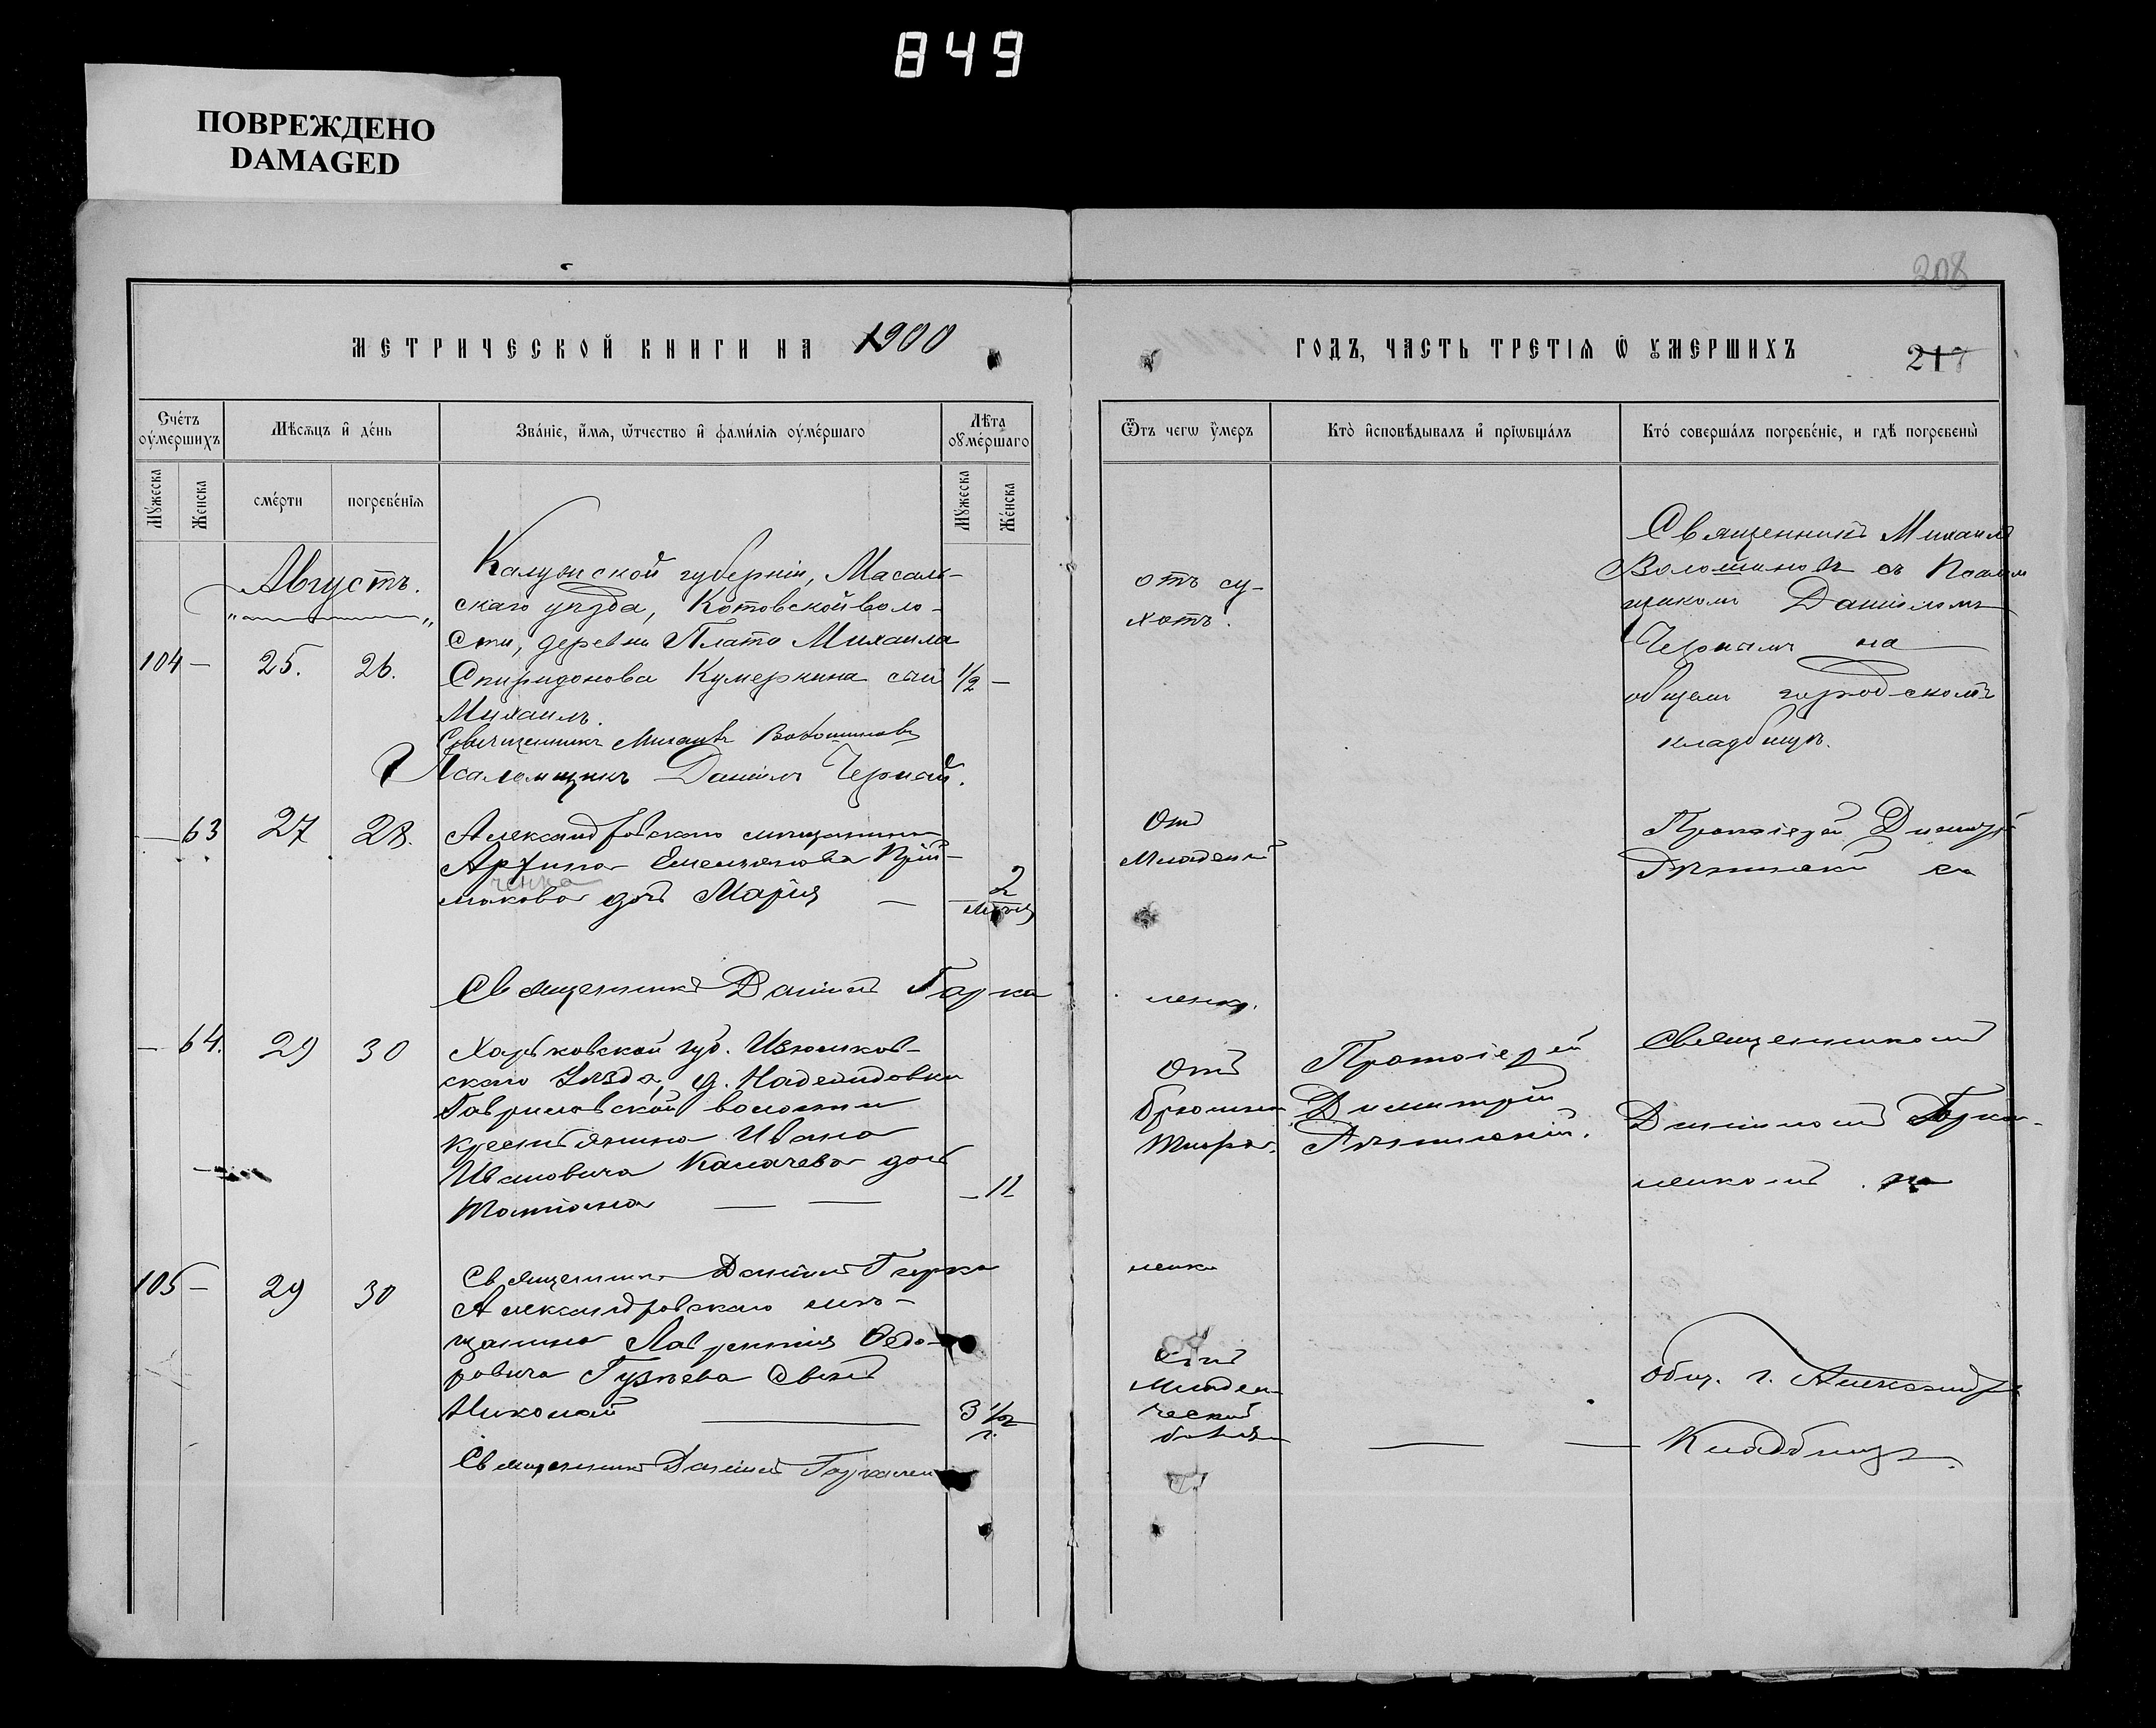 849
ПОВРЕЖДЕНО
DAMAGED
208
МЕТРИЧЕСКОЙ КНИГИ НА 1900
ГОДЪ, ЧАСТЬ ТРЕТІЯ Ѿ УМЕРШИХЪ
217
Сче́тъ оумершихъ
Мѣсѧцъ и де́нь
Зва́ніе, и́мѧ, ѻтчество и фами́лія оуме́ршаго
Лѣта оуме́ршаго
Ѿтъ чегѡ умеръ
Кто̀ исповѣдывалъ и прїѡбща́лъ
Кто̀ соверша́лъ погребе́ніе, и гдѣ погребены̀
Му́жеска
Же́нска
сме́рти
погребе́нїѧ
Му́жеска
Же́нска
Августъ.
Калужской губерніи, Масаль-
скаго уѣзда, Котовской воло-
сти, деревни Плато Михаила
104 — 25. 26. Спиридонова Кумеркина сынъ 1/2 —
Михаилъ.
Священникъ Михаилъ Волошиновъ
Псаломщикъ Даніилъ Черный.
отъ су-
хотъ.
Священникъ Михаилъ
Волошиновъ съ Псалом
щикомъ Даніиломъ
Чернымъ на
общемъ городскомъ
кладбищѣ.
— 63 27 28. Александровскаго мещанина
Архипа Емельянова Прій-
ченка
макова дочь Марія — 2
мѣсяц
От
Младенч
Протоіерей Димитрій
Священникъ Даніилъ Гарка
ленко.
— 64. 29 30 Харьковской губ. Изюмков-
скаго Уѣзда, д. Надеждовки
Гавриловской волости
крестьянина Ивана
Ивановича Калачева дочь
Татіана — — 11
Отъ
брюшн
Тифа.
Протоіерей
Димитрій
Священникомъ
Даніиломъ Гарка-
ленкомъ на
105 — 29 30
Священникъ Даніилъ Гарка
ленко
Александровскаго мѣ-
щанина Лаврентія Ѳедо-
ровича Гузѣева сынъ
Николай — 3 1/2
г.
Отъ
Младен
ческой
болѣзн
— —
общ. г. Александр
Кладбищѣ.
Священникъ Даніилъ Гаркален